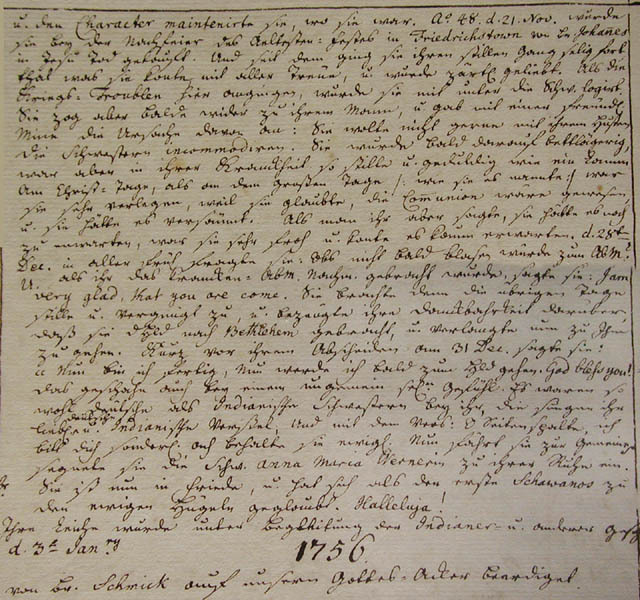 u. den Character maintenirte sie, wo sie war. Ao 48. d. 21. Nov. wurde
sie bey der Nachfeier des Aeltesten-Festes in Friedrichstown von Br. Johanes
in Jesu Tod getauft. Und seit dem ging sie ihren stillen Gang selig fort
that was sie konte mit aller Treue, u. wurde zärtl. geliebt. Als die
Kriegs-Troublen hier angingen, wurde sie mit unter die Schw. logirt.
Sie zog aber balde wider zu ihrem Mann, u. gab mit einer freundl.
Mine die Ursache davon an: Sie wolte nicht gerne mit ihrem Husten
die Schwestern incommodiren. Sie wurde bald darauf bettlägerig,
war aber in ihrer Kranckheit so stille u. gedultig wie ein Lamm
Am Christ-Tage, als an dem Grosen Tage /: wie sie es nannte :/ war
sie sehr verlegen, weil sie glaubte, die Comunion wäre gewesen,
u. sie hätte es versäumt. Als man ihr aber sagte, sie hätte es noch
zu erwarten, war sie sehr froh u. konte es kaum erwarten. d. 28t
Dec. in aller früh fragte sie: Obs nicht bald blasen würde zum Abm?
U. als ihr das Krancken-Abm. Nachm. gebracht wurde, sagte sie: Jam
very glad, that you are come. Sie brachte denn die übrigen Tage
stille u. vergnügt zu, u. bezeugte ihre Danckbahrkeit darüber,
daß sie d. Hld nach Bethlehem gebracht, u. verlangte nun zu Ihm
zu gehen. Kurz vor ihrem Abscheiden am 31 Dec. sagte sie:
Nun bin ich fertig, Nun werde ich bald zum Hld gehen. God bless you!
das geschahe auch bey einem ungemein sel. Gefühl. Es waren so
wohl deutsche als Indianische Schwestern bey ihr, die sungen ihr
liebliche deutsche u. Indianische Versel, und mit dem Vers: O Seitenspalte, ich
bitt dich sonderl. ach behalte sie ewigl. Nun fährt sie zur Gemeine
segnete sie die Schw. Anna Maria Wernerin zu ihrer Ruhe ein.
Sie ist nun in Friede, u. hat sich als den erste Schawanos zu
den ewigen Hügeln geglaubt. Halleluja!
Ihre Leiche wurde unter Begleitung der Indianer- u. anderer
d. 3t Janry
1756.
von Br. Schmick auf unserm Gottes-Acker beerdiget.